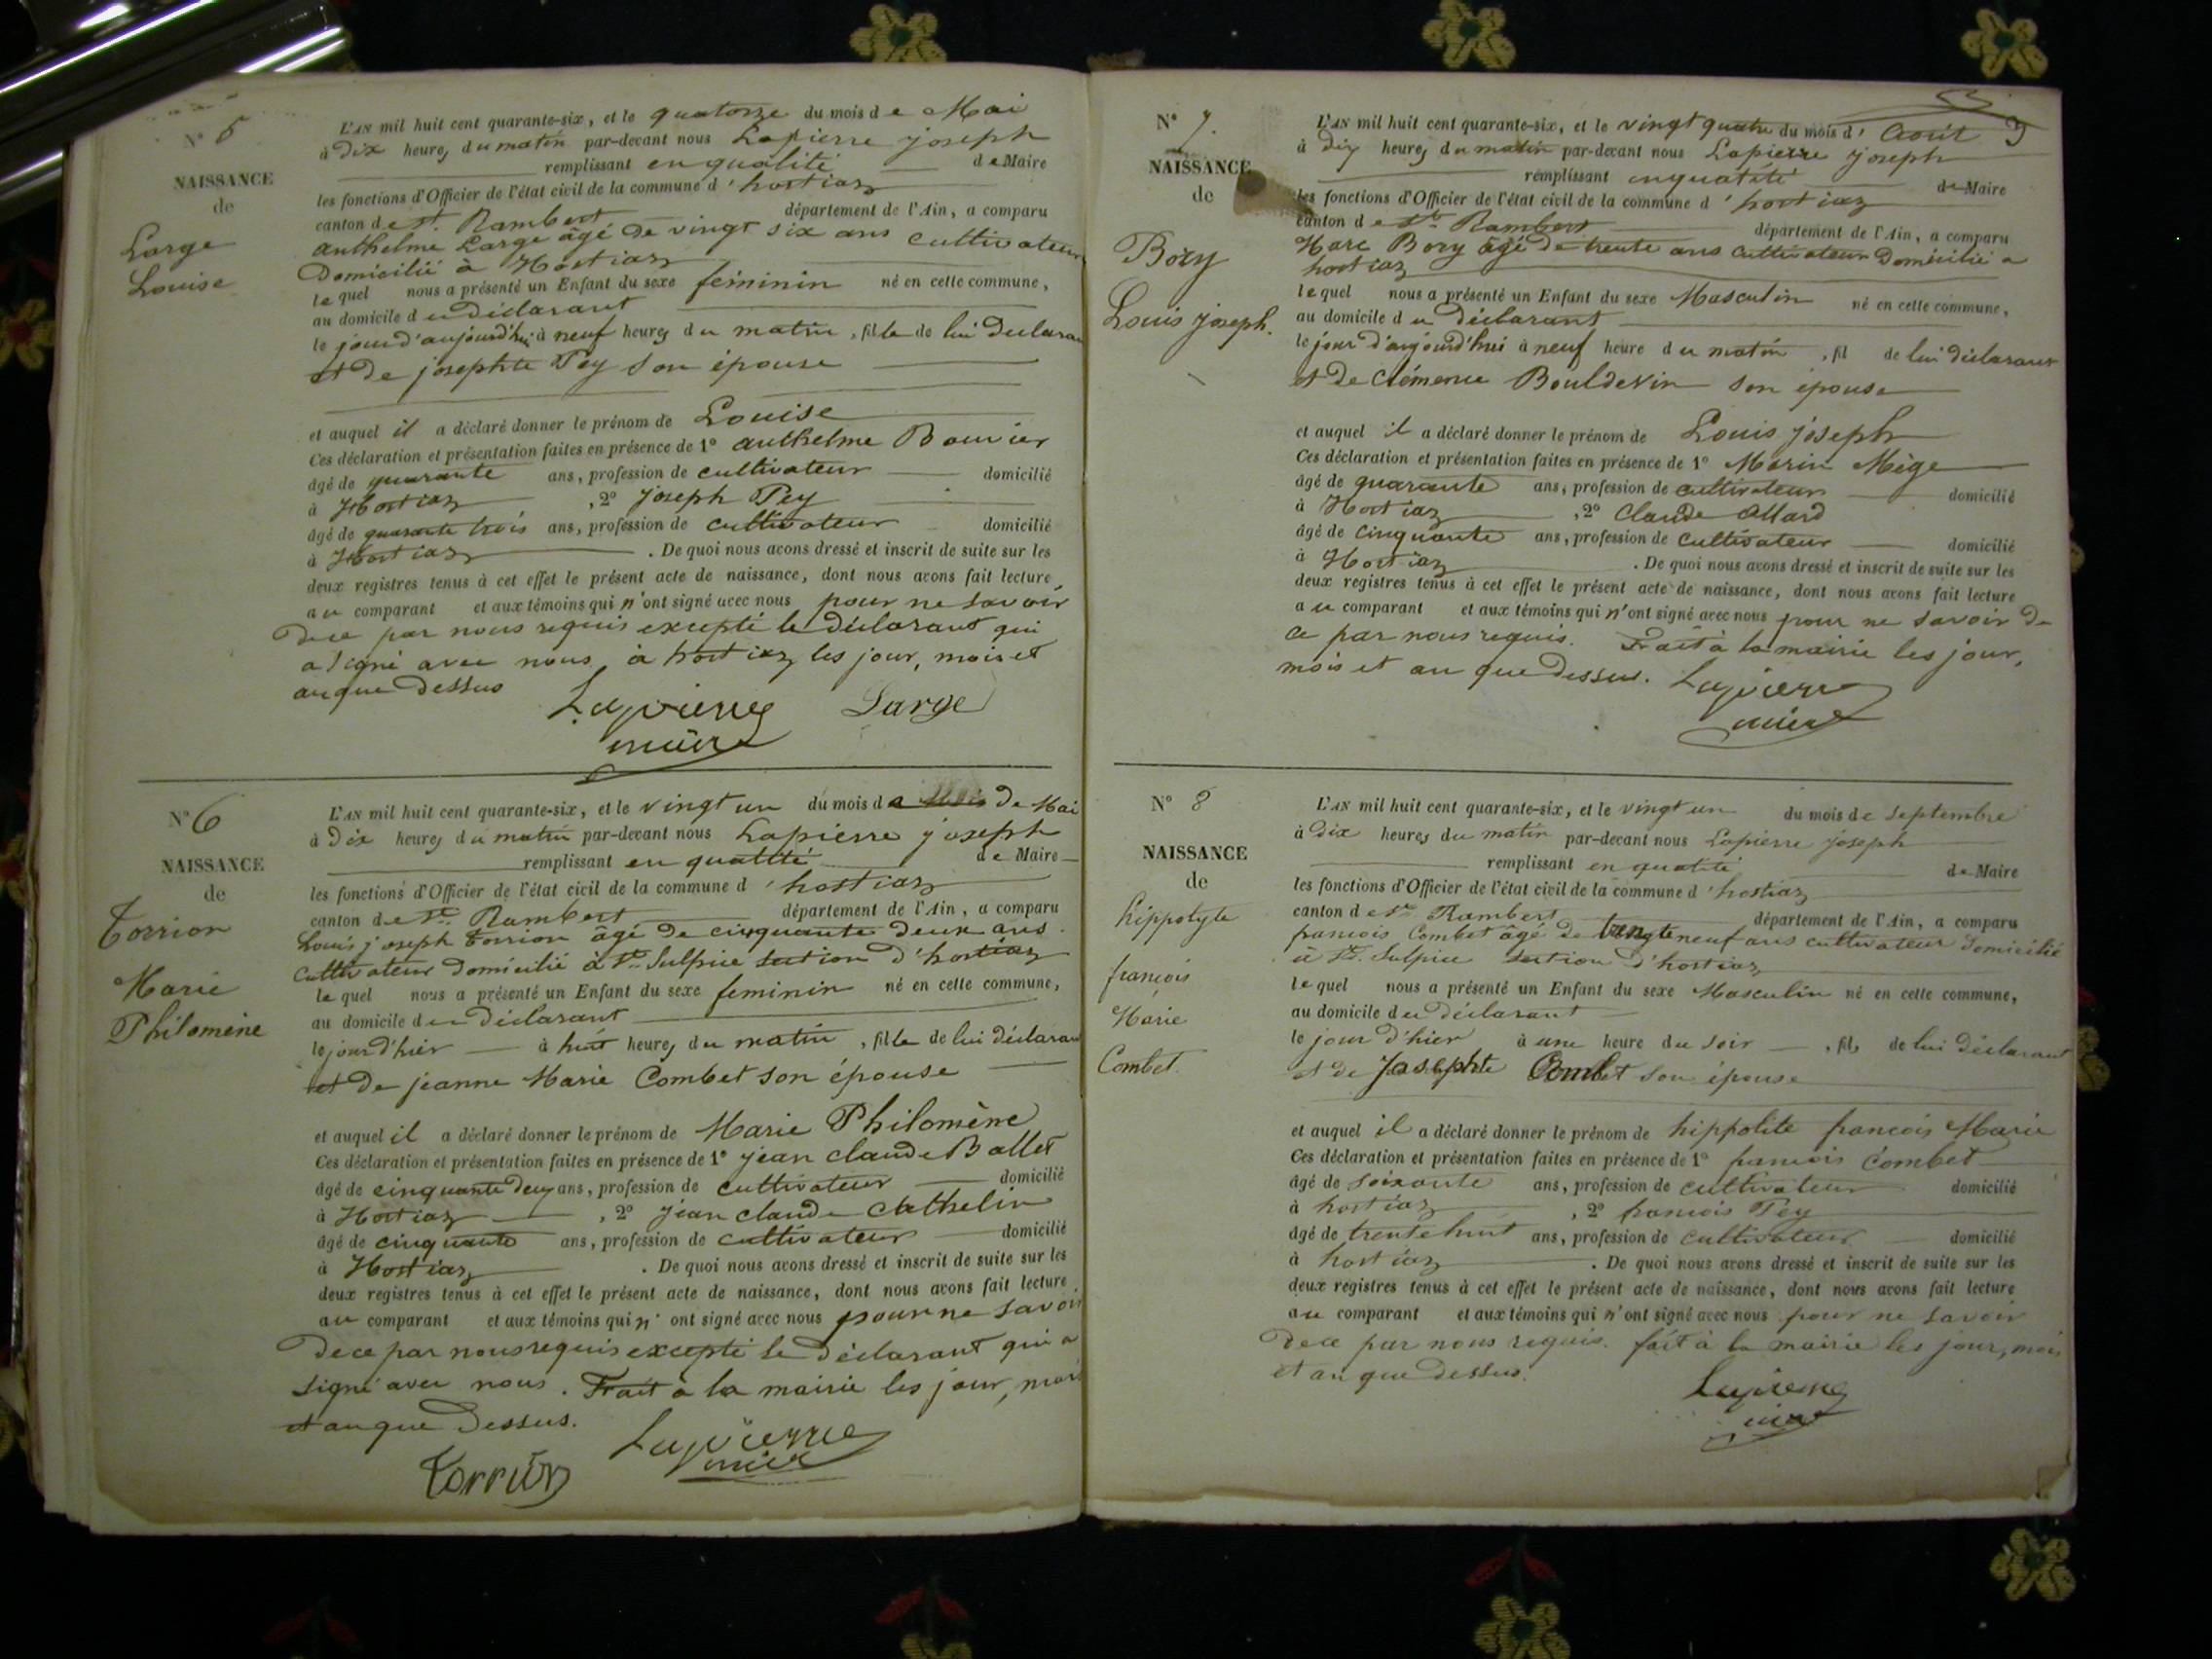 N° 5
NAISSANCE
de
Large
Louise
L'AN mil huit cent quarante-six, et le quatorze du mois de Mai
à dix heures du matin par-devant nous Lapierre joseph
remplissant en qualité de Maire
les fonctions d'Officier de l'état civil de la commune d'hostiaz
canton de St. Rambert département de l'Ain, a comparu
anthelme Large âgé de vingt six ans cultivateur
Domicilié à Hostiaz
lequel nous a présenté un Enfant du sexe féminin né en cette commune,
au domicile du déclarant
le jour d'aujourd'hui à neuf heures du matin, fille de lui déclarant
et de josephte Pey son épouse
et auquel il a déclaré donner le prénom de Louise
Ces déclaration et présentation faites en présence de 1° anthelme Bouvier
âgé de quarante ans, profession de cultivateur domicilié
à Hostiaz, 2° joseph Pey
âgé de quarante trois ans, profession de cultivateur domicilié
à Hostiaz. De quoi nous avons dressé et inscrit de suite sur les
deux registres tenus à cet effet le présent acte de naissance, dont nous avons fait lecture
au comparant et aux témoins qui n'ont signé avec nous pour ne savoir
de ce par nous requis excepté le déclarant qui
a signé avec nous, à hostiaz les jour, mois et
an que dessus
Lapierre Large
maire
N° 6
NAISSANCE
de
Torrion
Marie
Philomène
L'AN mil huit cent quarante-six, et le vingt un du mois de Mai
à Dix heures du matin par-devant nous Lapierre joseph
remplissant en qualité de Maire
les fonctions d'Officier de l'état civil de la commune d'hostiaz
canton de St. Rambert département de l'Ain, a comparu
Louis joseph Torrion âgé de cinquante deux ans
cultivateur domicilié à St. Sulpice section d'hostiaz
lequel nous a présenté un Enfant du sexe feminin né en cette commune,
au domicile du déclarant
le jour d'hier à huit heures du matin, fille de lui déclarant
et de jeanne Marie Combet son épouse
et auquel il a déclaré donner le prénom de Marie Philomène
Ces déclaration et présentation faites en présence de 1° jean claude Ballet
âgé de cinquante deux ans, profession de cultivateur domicilié
à Hostiaz, 2° jean claude Cathelin
âgé de cinquante ans, profession de cultivateur domicilié
à Hostiaz. De quoi nous avons dressé et inscrit de suite sur les
deux registres tenus à cet effet le présent acte de naissance, dont nous avons fait lecture
au comparant et aux témoins qui n'ont signé avec nous pour ne savoir
de ce par nous requis excepté le déclarant qui a
signé avec nous. Fait à la mairie les jour, mois
et an que dessus.
Lapierre
maire
Torrion
9
N° 7
NAISSANCE
de
Bory
Louis joseph.
L'AN mil huit cent quarante-six, et le vingt quatre du mois d'Août
à dix heures du matin par-devant nous Lapierre joseph
remplissant en qualité de Maire
les fonctions d'Officier de l'état civil de la commune d'hostiaz
canton de St. Rambert département de l'Ain, a comparu
Marc Bory âgé de trente ans cultivateur domicilié à
hostiaz
lequel nous a présenté un Enfant du sexe Masculin né en cette commune,
au domicile du déclarant
le jour d'aujourd'hui à neuf heure du matin, fil de lui déclarant
et de Clémence Bouldevin son épouse
et auquel il a déclaré donner le prénom de Louis joseph
Ces déclaration et présentation faites en présence de 1° Marin Mège
âgé de quarante ans, profession de cultivateur domicilié
à Hostiaz, 2° Claude Allard
âgé de cinquante ans, profession de cultivateur domicilié
à Hostiaz. De quoi nous avons dressé et inscrit de suite sur les
deux registres tenus à cet effet le présent acte de naissance, dont nous avons fait lecture
au comparant et aux témoins qui n'ont signé avec nous pour ne savoir de
ce par nous requis. Fait à la mairie les jour,
mois et an que dessus. Lapierre
maire
N° 8
NAISSANCE
de
hippolyte
françois
Marie
Combet.
L'AN mil huit cent quarante-six, et le vingt un du mois de septembre
à dix heures du matin par-devant nous Lapierre joseph
remplissant en qualité de Maire
les fonctions d'Officier de l'état civil de la commune d'hostiaz
canton de St. Rambert département de l'Ain, a comparu
francois Combet âgé de neuf ans cultivateur domicilié
à St. Sulpice section d'hostiaz
lequel nous a présenté un Enfant du sexe Masculin né en cette commune,
au domicile du déclarant
le jour d'hier à une heure du soir, fils de lui déclarant
et de Josephte Combet son épouse
et auquel il a déclaré donner le prénom de hippolite francois Marie
Ces déclaration et présentation faites en présence de 1° francois Combet
âgé de soixante ans, profession de cultivateur domicilié
à hostiaz, 2° francois Pey
âgé de trente huit ans, profession de cultivateur domicilié
à hostiaz. De quoi nous avons dressé et inscrit de suite sur les
deux registres tenus à cet effet le présent acte de naissance, dont nous avons fait lecture
au comparant et aux témoins qui n'ont signé avec nous pour ne savoir
de ce par nous requis. fait à la mairie les jour, mois
et an que dessus.
Lapierre
maire